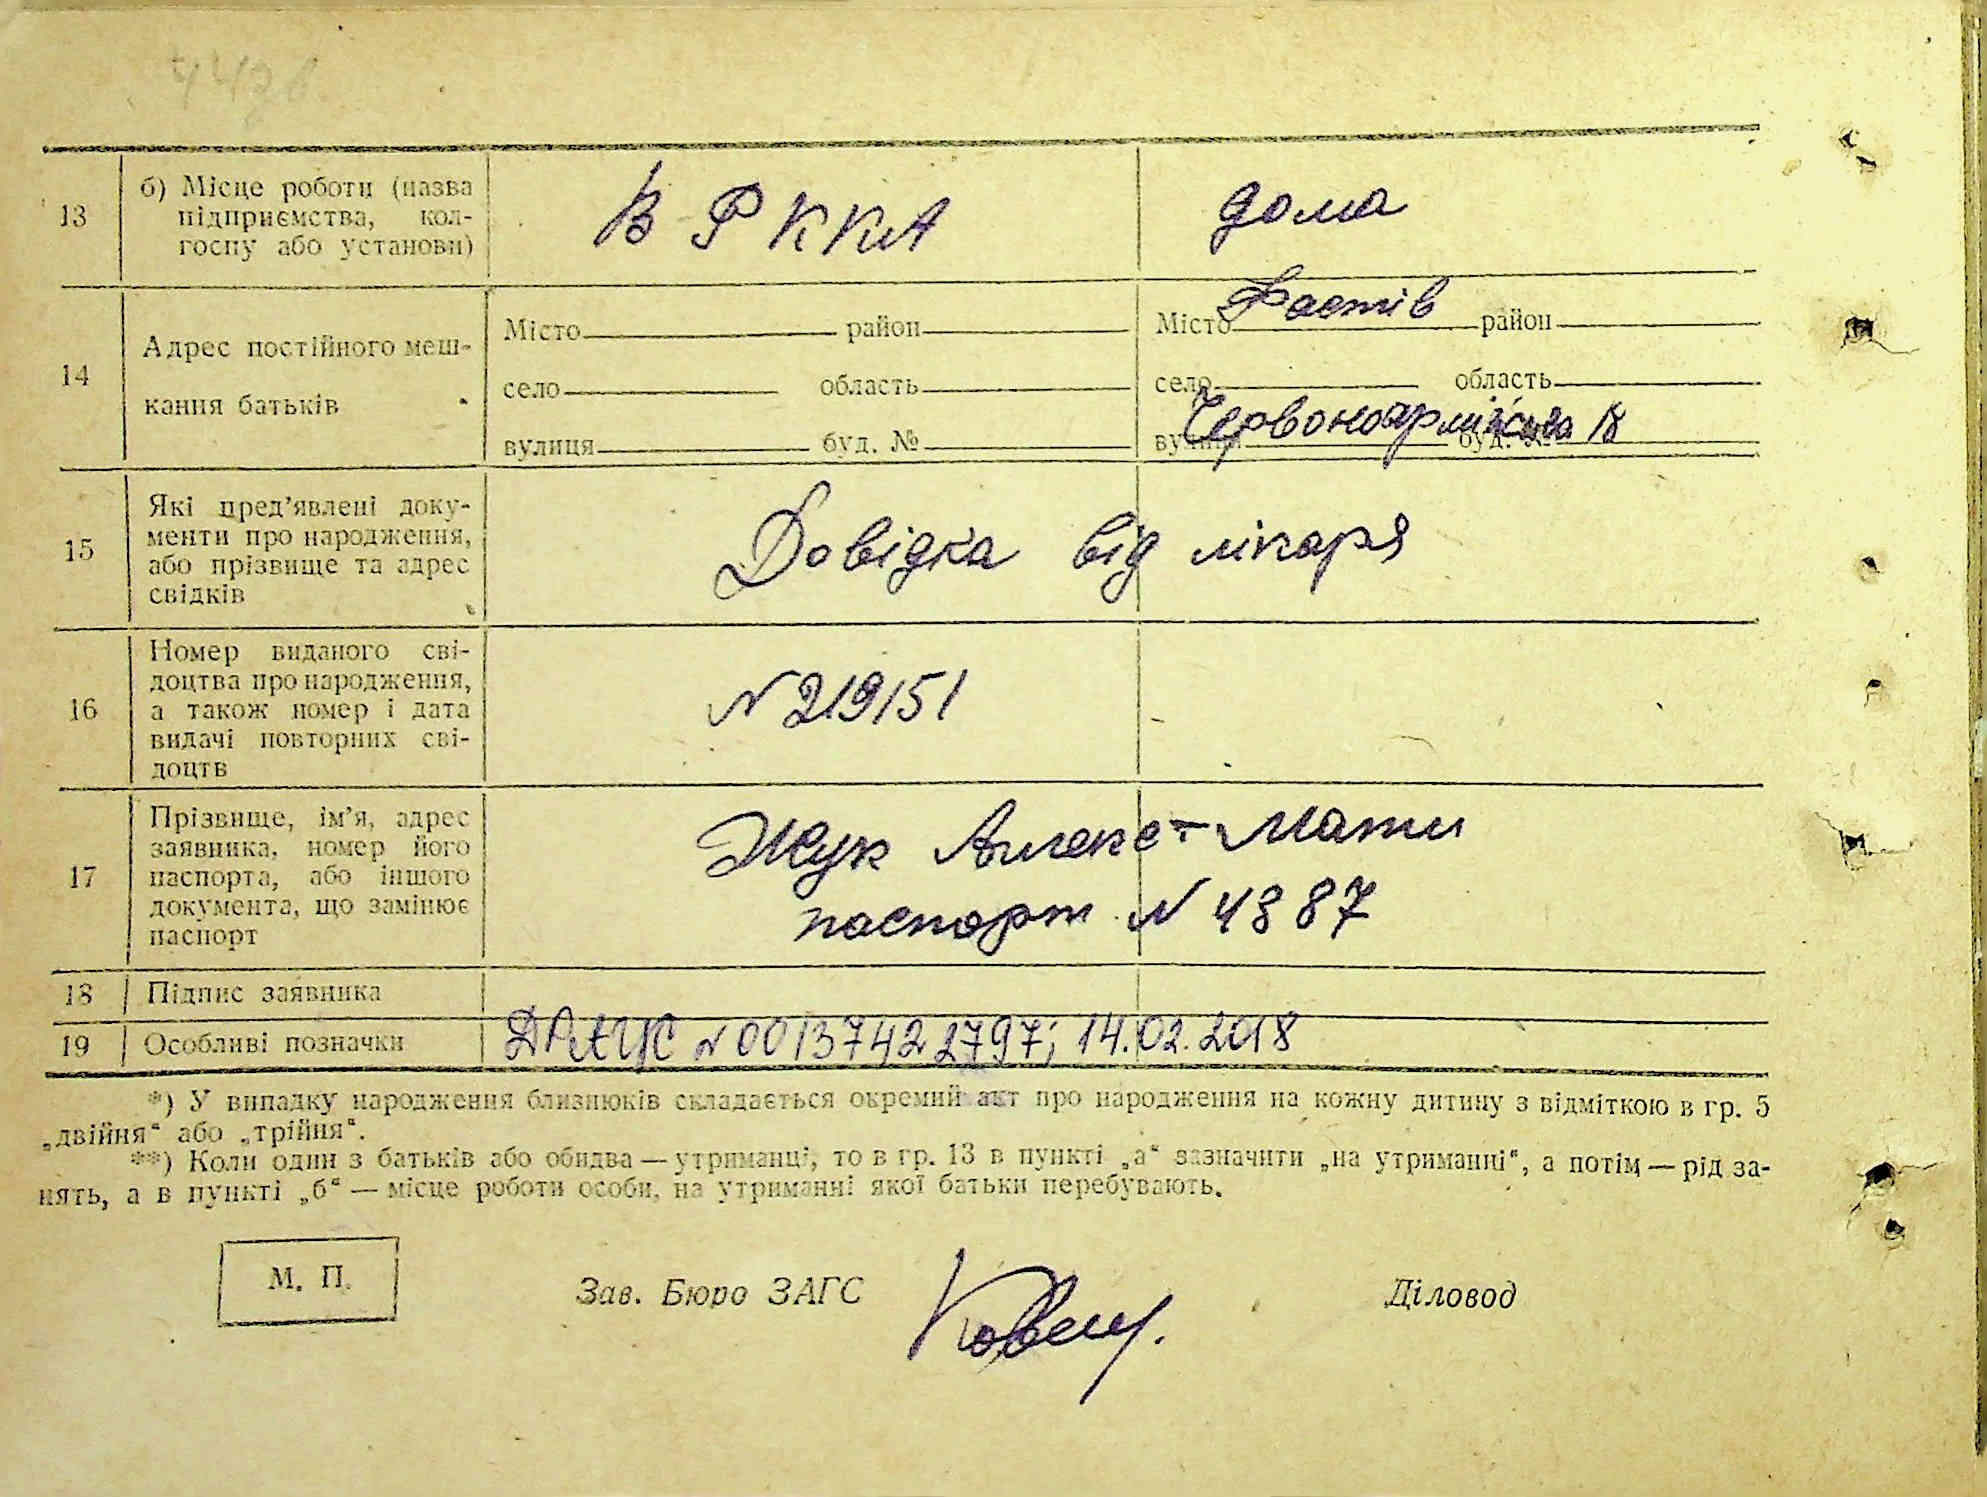 13 б) Місце роботи (назва
підприємства, кол-
госпу або установи)
В РККА
дома
14 Адрес постійного меш-
кання батьків
Місто район
село область
вулиця буд. №
Місто Фастів район
село область
вулиця Червоноармійська 18 буд. №
15 Які пред'явлені доку-
менти про народження,
або прізвище та адрес
свідків
Довідка від лікаря
16 Номер виданого сві-
доцтва про народження,
а також номер і дата
видачі повторних сві-
доцтв
N 219151
17 Прізвище, ім'я, адрес
заявника, номер його
паспорта, або іншого
документа, що замінює
паспорт
Жук Алекс - Мати
паспорт N 4887
18 Підпис заявника
19 Особливі позначки
ДРАЦС N 00137422797; 14.02.2018
*) У випадку народження близнюків складається окремий акт про народження на кожну дитину з відміткою в гр. 5
„двійня“ або „трійня“.
**) Коли один з батьків або обидва — утриманці, то в гр. 13 в пункті „а“ зазначити „на утриманні“, а потім — рід за-
нять, а в пункті „б“ — місце роботи особи, на утриманні якої батьки перебувають.
М. П.
Зав. Бюро ЗАГС
Діловод